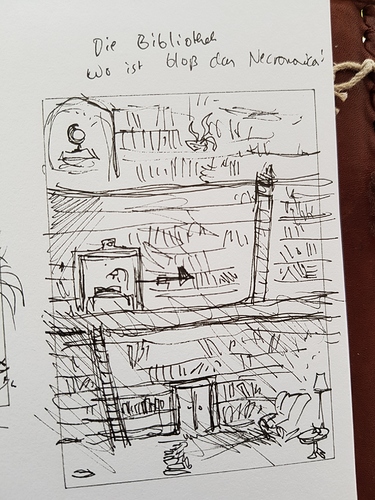 Die Bibliothek
Wo ist bloß das Necronomica!